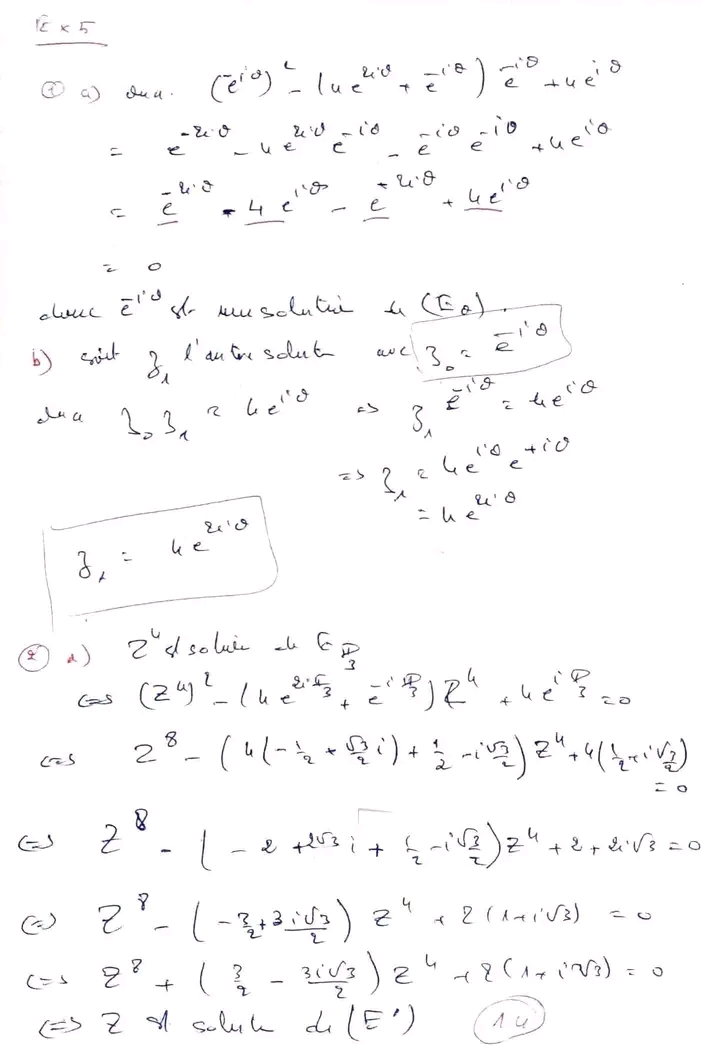 Ex 5
① a) on a. (e^{-iθ})² - (4e^{2iθ} + e^{-iθ}) e^{-iθ} + 4e^{iθ}
= e^{-2iθ} - 4e^{2iθ} e^{-iθ} - e^{-iθ} e^{-iθ} + 4e^{iθ}
= e^{-2iθ} - 4e^{iθ} - e^{-2iθ} + 4e^{iθ}
= 0
donc e^{-iθ} st une solution de (E_θ).
b) soit z₁ l'autre solut avec z₀ = e^{-iθ}
on a z₀ z₁ = 4e^{iθ} => z₁ e^{-iθ} = 4e^{iθ}
=> z₁ = 4e^{iθ} e^{+iθ}
= 4e^{2iθ}
z₁ = 4e^{2iθ}
② a) Z⁴ st solution de E_{π/3}
<=> (Z⁴)² - (4e^{2iπ/3} + e^{-iπ/3}) Z⁴ + 4e^{iπ/3} = 0
<=> Z⁸ - (4(-1/2 + √3/2 i) + 1/2 - i√3/2) Z⁴ + 4(1/2 + i√3/2) = 0
<=> Z⁸ - (-2 + 2√3 i + 1/2 - i√3/2) Z⁴ + 2 + 2i√3 = 0
<=> Z⁸ - (-3/2 + 3i√3/2) Z⁴ + 2(1 + i√3) = 0
<=> Z⁸ + (3/2 - 3i√3/2) Z⁴ + 2(1 + i√3) = 0
<=> Z st solut de (E')
14